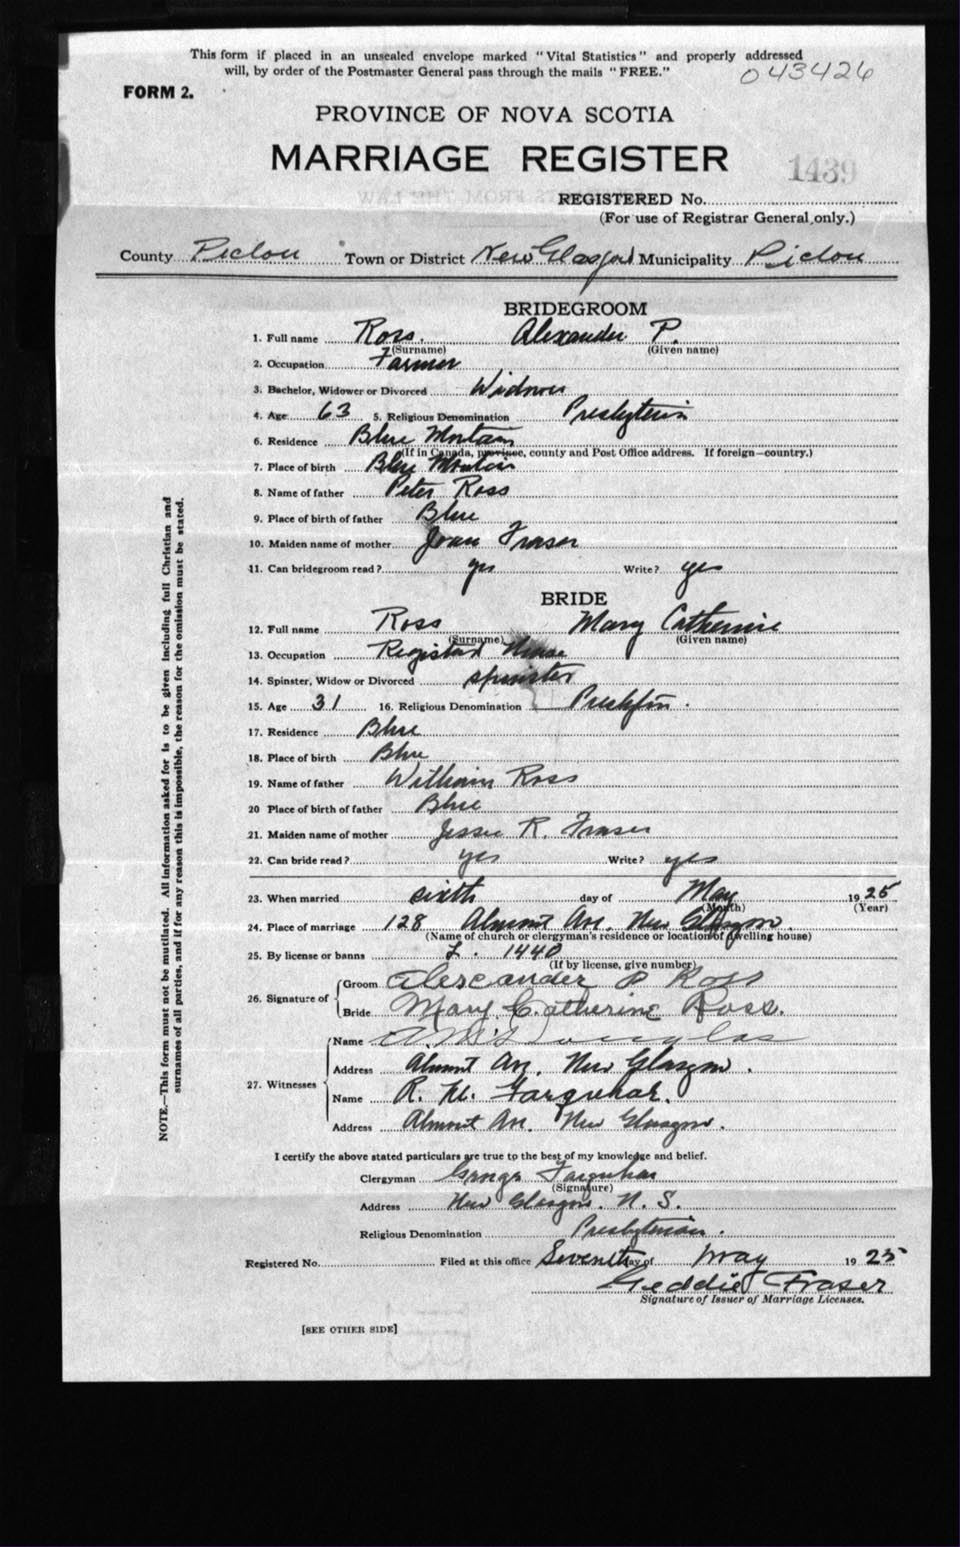 This form if placed in an unsealed envelope marked "Vital Statistics" and properly addressed
will, by order of the Postmaster General pass through the mails "FREE."
043426
FORM 2.
PROVINCE OF NOVA SCOTIA
MARRIAGE REGISTER
1439
REGISTERED No.
(For use of Registrar General only.)
County Pictou Town or District New Glasgow Municipality Pictou
BRIDEGROOM
1. Full name Ross. Alexander P.
(Surname) (Given name)
2. Occupation Farmer
3. Bachelor, Widower or Divorced Widower
4. Age 63 5. Religious Denomination Presbyterin
6. Residence Blue Montain
(If in Canada, province, county and Post Office address. If foreign—country.)
7. Place of birth Blue Montain
8. Name of father Peter Ross
9. Place of birth of father Blue
10. Maiden name of mother Joan Fraser
11. Can bridegroom read? yes Write? yes
BRIDE
12. Full name Ross Mary Catherine
(Surname) (Given name)
13. Occupation Registard Nurse
14. Spinster, Widow or Divorced spinster
15. Age 31 16. Religious Denomination
17. Residence Blue
18. Place of birth Blue
19. Name of father William Ross
20 Place of birth of father Blue
21. Maiden name of mother Jessie R. Fraser
22. Can bride read? yes Write? yes
23. When married sixth day of May 1925
(Month) (Year)
24. Place of marriage 128 Almont Av. New Glasgow.
(Name of church or clergyman's residence or location of dwelling house)
25. By license or banns L. 1440
(If by license, give number)
26. Signature of
Groom Alexander P Ross
Bride Mary Catherine Ross.
27. Witnesses
Name Douglas
Address Almont Av. New Glasgow.
Name R. Farquhar.
Address Almont Av. New Glasgow.
I certify the above stated particulars are true to the best of my knowledge and belief.
Clergyman George Farquhar
(Signature)
Address New Glasgow. N. S.
Religious Denomination Presbyterian.
Registered No. Filed at this office Seventh day of May 1925
Geddie Fraser
Signature of Issuer of Marriage Licenses.
[SEE OTHER SIDE]
NOTE.—This form must not be mutilated. All information asked for is to be given including full Christian and
surnames of all parties, and if for any reason this is impossible, the reason for the omission must be stated.